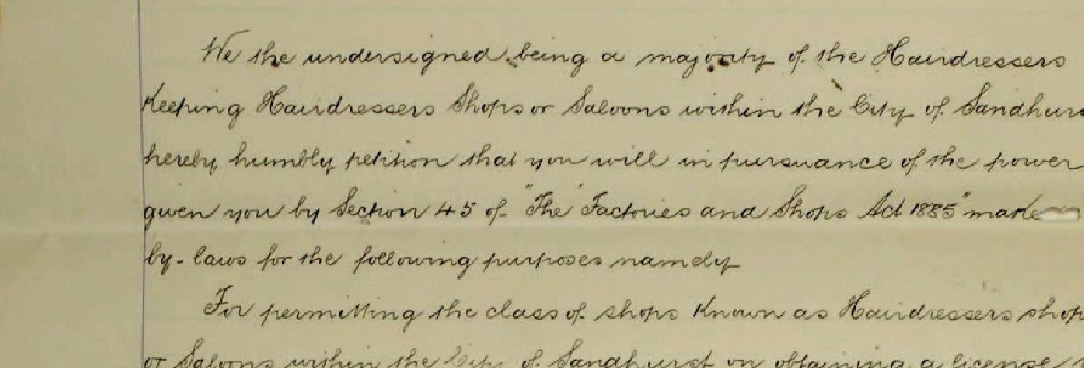 We the undersigned being a majority of the Hairdressers
Keeping Hairdressers Shops or Saloons within the City of Sandhurs
hereby humbly petition that you will in pursuance of the power
given you by Section 45 of "The Factories and Shops Act 1885" make
by-laws for the following purposes namely
For permitting the class of shops known as Hairdressers shop
or Saloons within the City of Sandhurst on obtaining a license